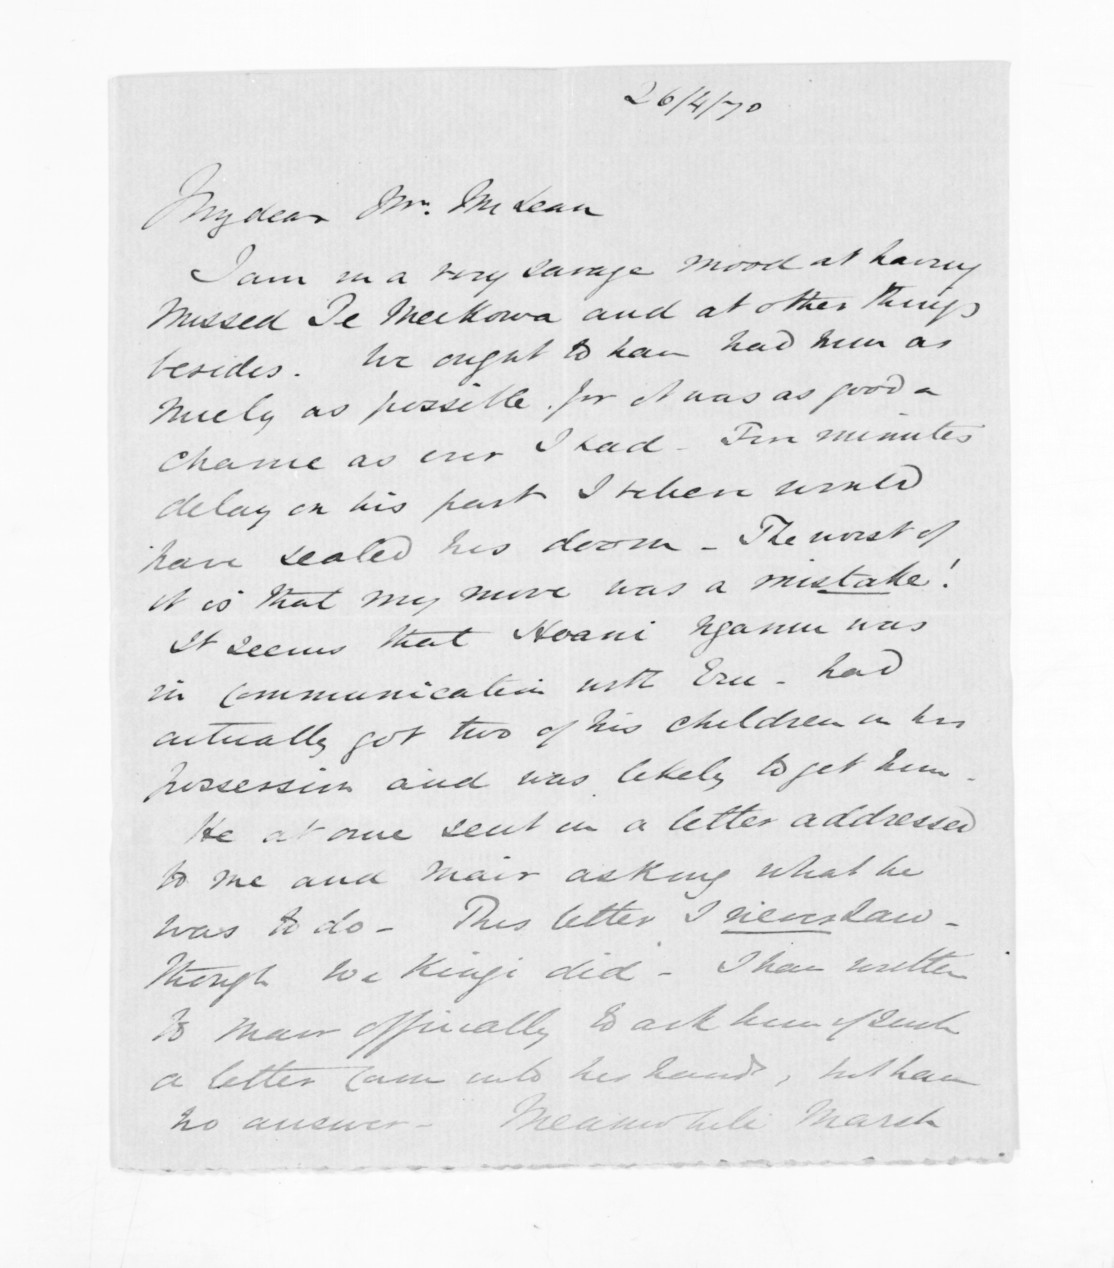 26/4/70
My dear Mr. McLean
I am in a very savage mood at having
missed Te Meihowa and at other things
besides. We ought to have had him as
nicely as possible for it was as good a
chance as ever I had - Five minutes
delay on his part I believe would
have sealed his doom - The worst of
it is that my move was a mistake!
It seems that Hoani Ngamu was
in communication with Eru - had
actually got two of his children in his
possession and was likely to get him -
He at once sent in a letter addressed
to me and Mair asking what he
was to do - This letter I never saw -
though We Kingi did - I have written
to Mair officially to ask him if such
a letter came into his hands, but have
no answer - Meanwhile March